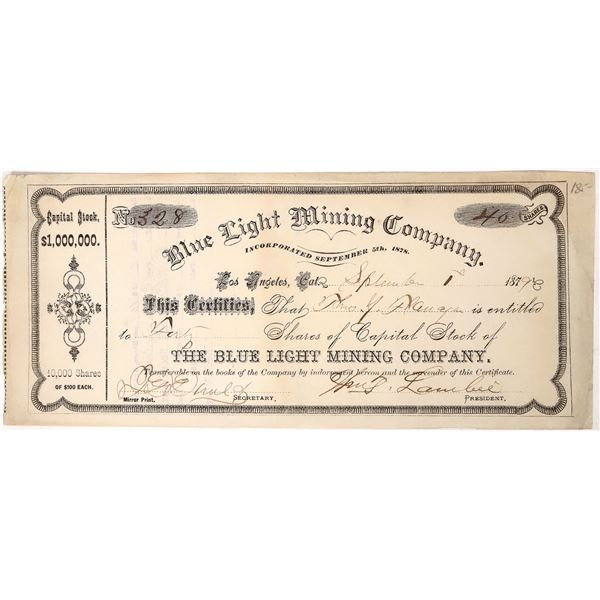 Capital Stock,
$1,000,000.
10,000 Shares
OF $100 EACH.
No. 328
40 SHARES
185-
Blue Light Mining Company.
INCORPORATED SEPTEMBER 5th, 1878.
Los Angeles, Cal. September 1st 1879
This Certifies, That Thos Y. is entitled
to Forty Shares of Capital Stock of
THE BLUE LIGHT MINING COMPANY.
Transferable on the books of the Company by indorsement hereon and the surrender of this Certificate.
Wm B. Lambie
Mirror Print. SECRETARY, PRESIDENT,